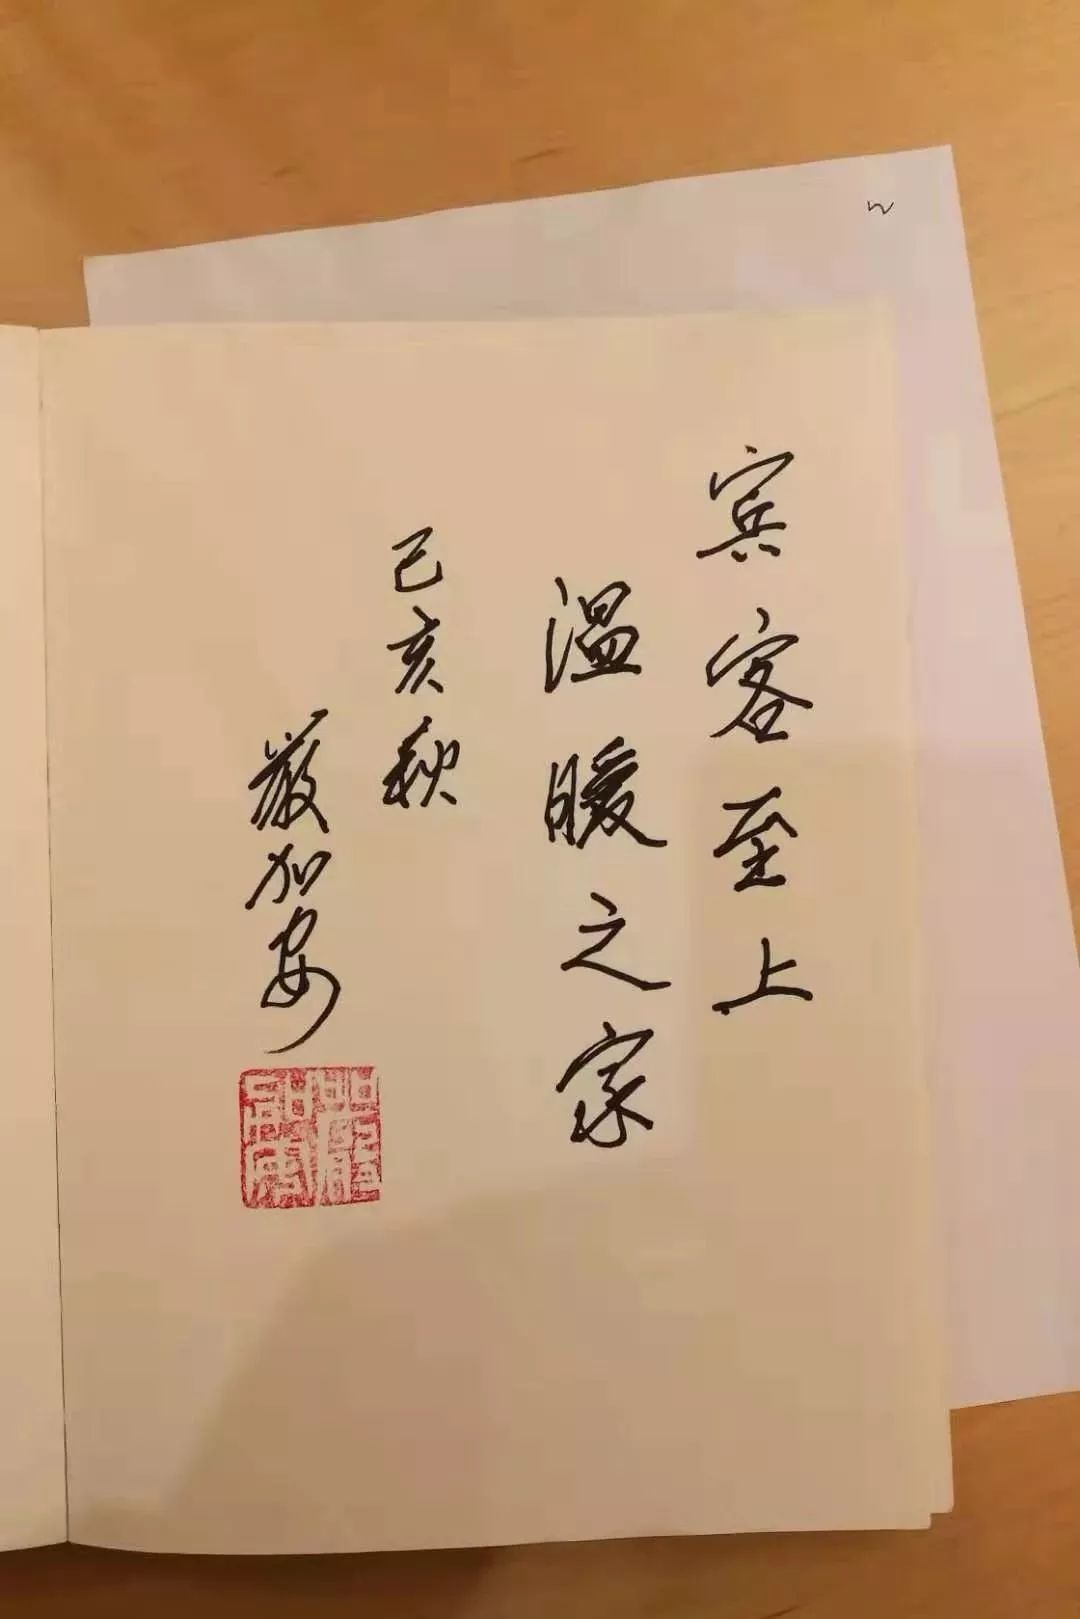 宾客至上
温暖之家
己亥秋
严加安